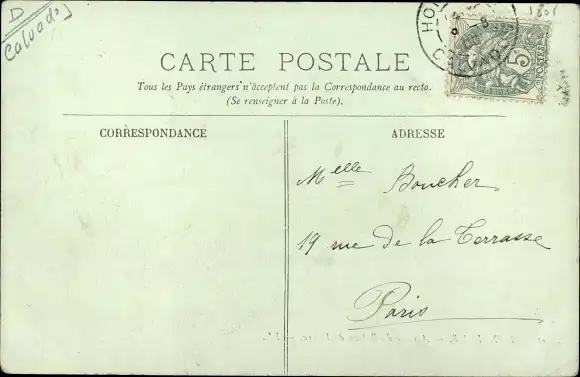 D
Calvados
1801
HO
CARTE POSTALE
Tous les Pays étrangers n'acceptent pas la Correspondance au recto.
(Se renseigner à la Poste).
5
POSTES
CORRESPONDANCE
ADRESSE
Melle Boucher
19 rue de la Terrasse
Paris